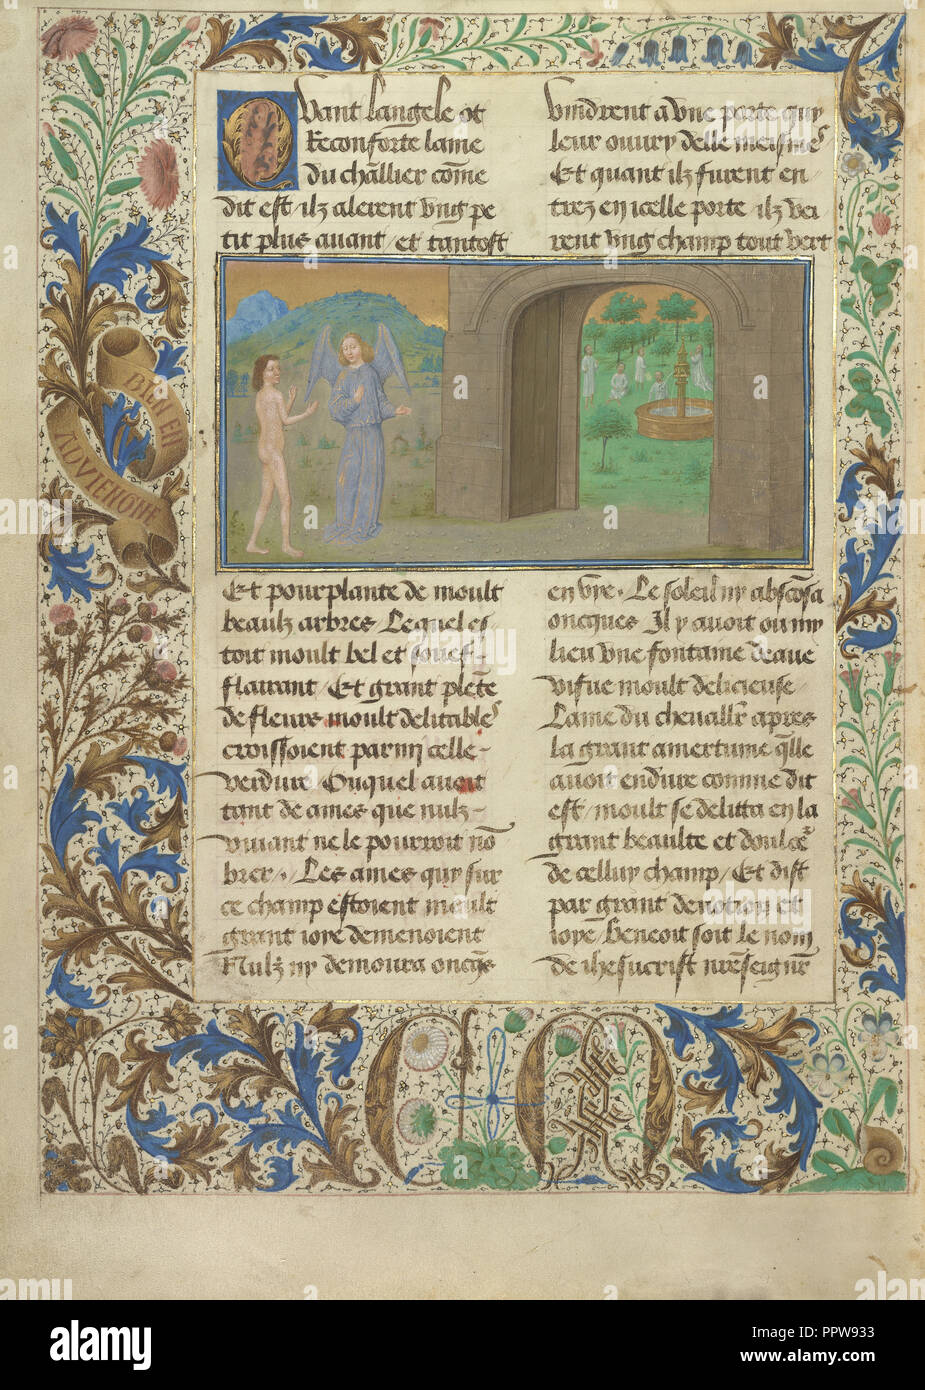 Quant langele ot
Reconforte lame
du chlllier cōme
dit est / ilz alerent vng pe
tit plus auant / et tantost
vindrent a vne porte quy
leur ouury delle meisme
Et quant ilz furent en
trez en icelle porte ilz vei
rent vng champ tout vert
BIEN EN
ADVIENGNE
Et pourplante de moult
beaulz arbres. Lequel es
toit moult bel et souef
flairant / Et grant plēte
de fleurs moult delitables
croissoient parmi celle
verdure. Ouquel auoit
tant de ames que nulz
viuant ne le pourroit nō
brer. Les ames quy sur
ce champ estoient moult
grant ioye demenoient
Nulz ny demoura oncqs
en vye. Le soleil ny absconsa
oncques. Il y auoit ou my
lieu vne fontaine deaue
vifue moult delicieuse
Lame du cheuallr apres
la grant amertume qlle
auoit endure comme dit
est / moult se delitta en la
grant beaulte et doulcr
de celluy champ / Et dist
par grant deuotion et
ioye / Benoit soit le nom
de ihesucrist nreseignr
C M
alamy
Image ID: PPW933
www.alamy.com